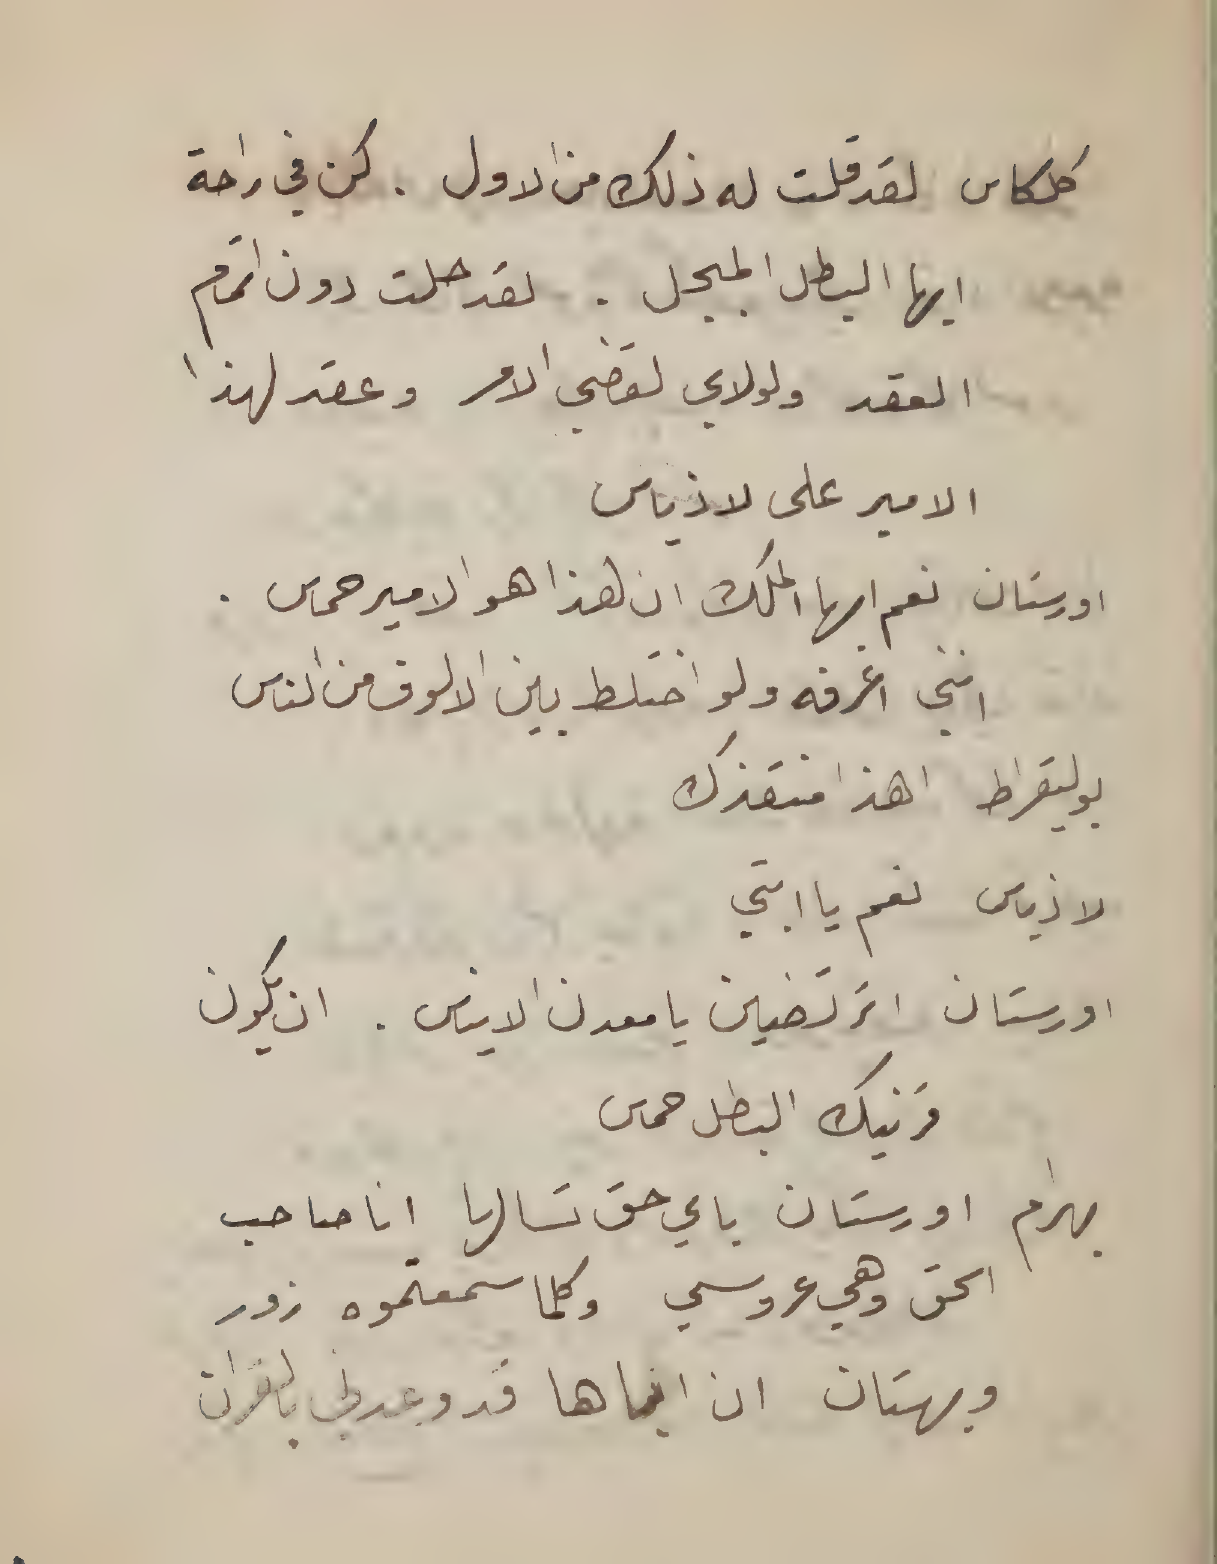 كلكاس لقد قلت له ذلك من الاول . كن في راحة
ايها البطل المبجل . لقد حلت دون اتمام
العقد ولولاي لقضي الامر وعقد لهذا
الامير على لاذياس
اورستان نعم ايها الملك ان هذا هو الامير حماس .
انني اعرفه ولو اختلط بين الالوف من الناس
بوليقراط اهذا منقذك
لاذياس نعم يا ابتي
اورستان اترتضين يا معدن الايناس . ان يكون
قرنيك البطل حماس
بهرام اورستان باي حق تسالها انا صاحب
الحق وهي عروسي وكلما سمعتموه زور
وبهتان ان اباها قد وعدني بالقران